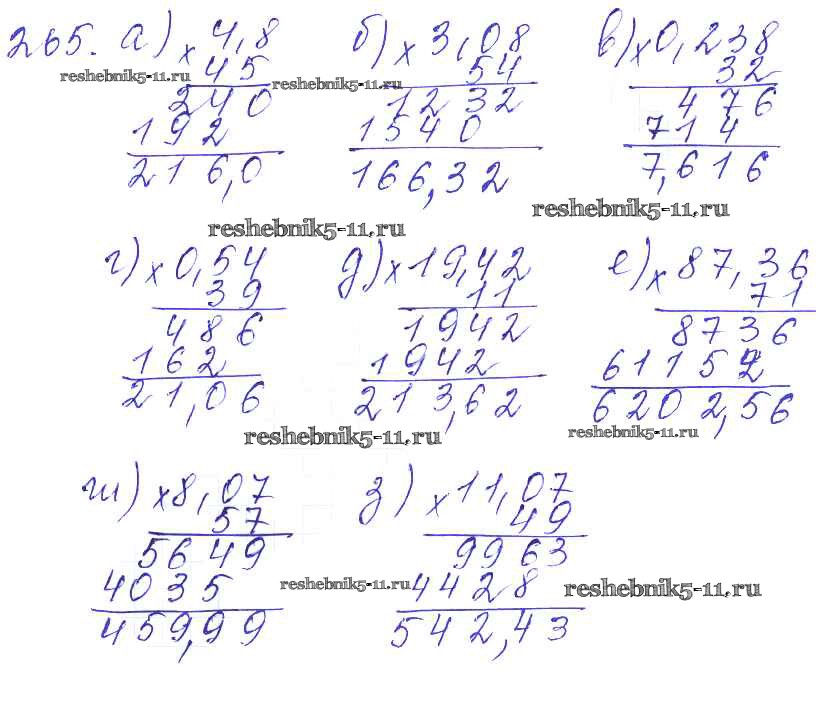 265. а) × 4,8 б) × 3,08 в) × 0,238
45 54 32
reshebnik5-11.ru reshebnik5-11.ru
240 1232 476
192 1540 714
216,0 166,32 7,616
reshebnik5-11.ru reshebnik5-11.ru
г) × 0,54 д) × 19,42 е) × 87,36
39 11 71
486 1942 8736
162 1942 61152
21,06 213,62 6202,56
reshebnik5-11.ru reshebnik5-11.ru
ж) × 8,07 з) × 11,07
57 49
5649 9963
4035 4428
reshebnik5-11.ru reshebnik5-11.ru
459,99 542,43